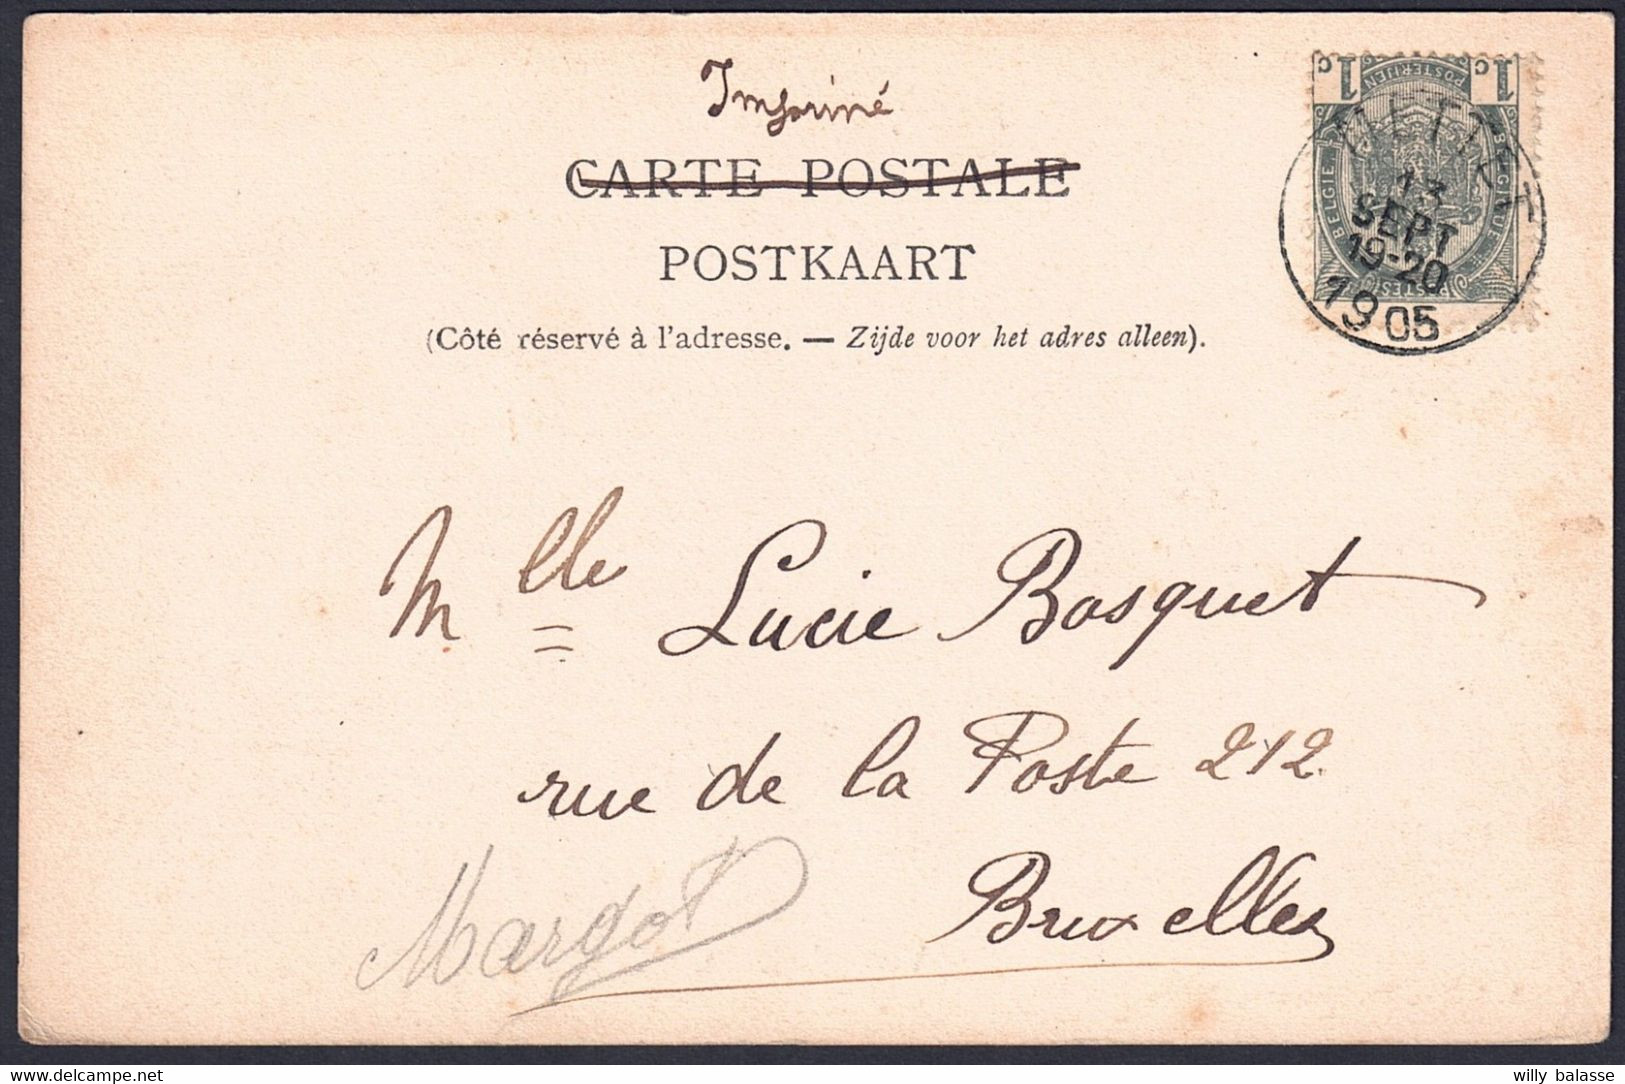 Imprimé
CARTE POSTALE
POSTKAART
(Côté réservé à l'adresse. — Zijde voor het adres alleen).
1c 1c
POSTERIJEN
BELGIE BELGIQUE
POSTES
METTET
13
SEPT
19-20
1905
Mlle Lucie Bosquet
rue de la Poste 212.
Bruxelles
Margot
willy balasse